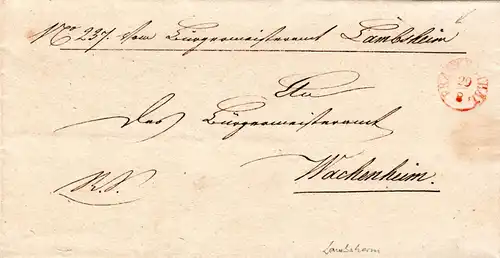 No 237. Vom Bürgermeisteramt Lambsheim
An
Das Bürgermeisteramt
Wachenheim.
R. S.
Lambsheim